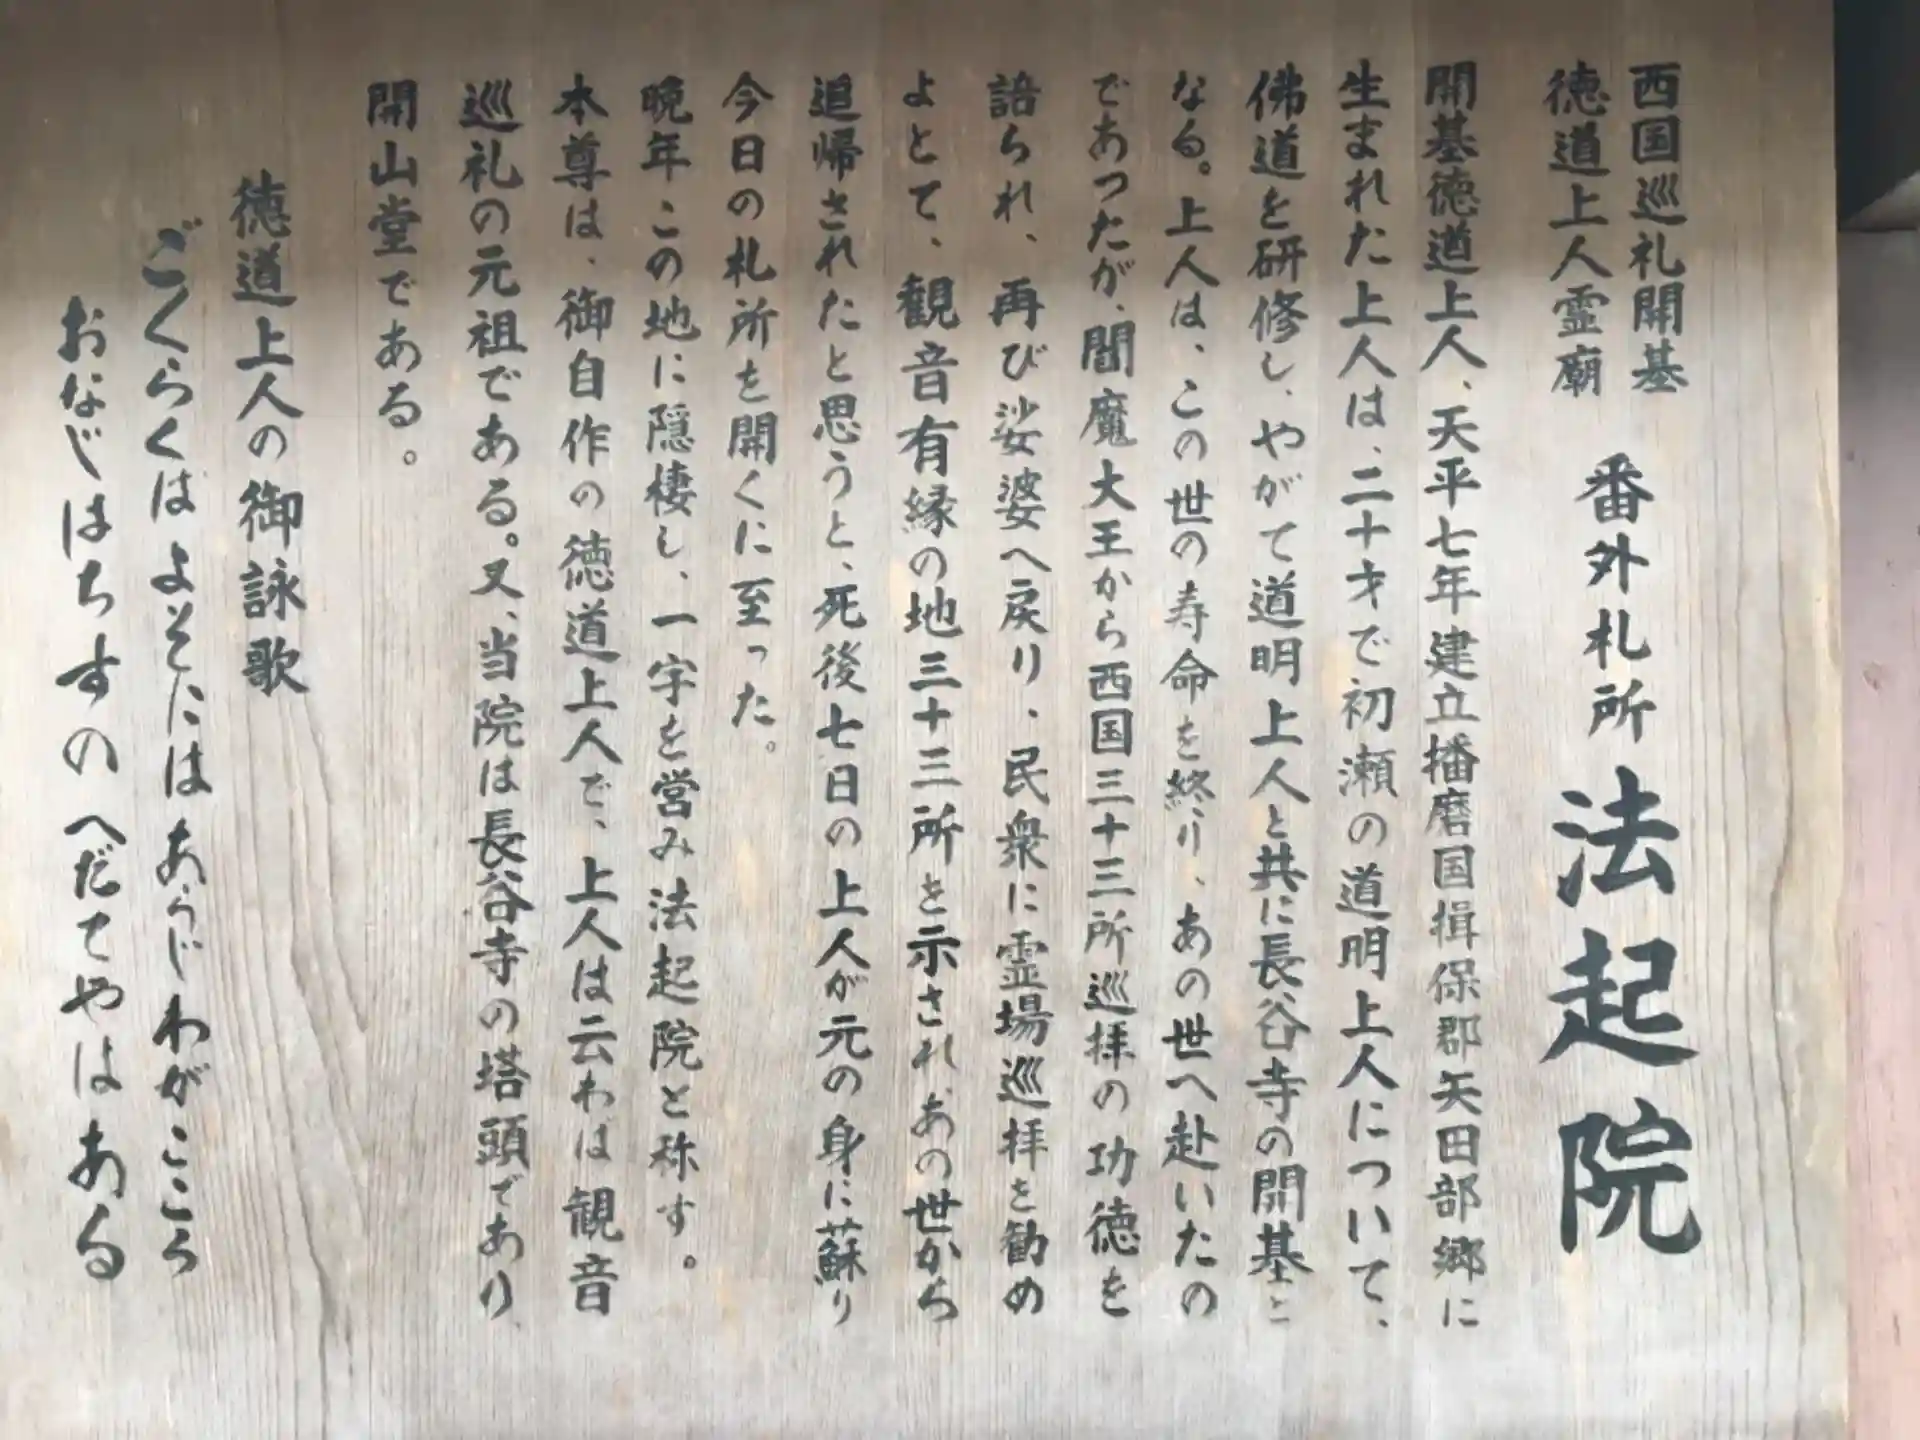 西国巡礼開基
徳道上人霊廟
番外札所 法起院
開基徳道上人、天平七年建立播磨国揖保郡矢田部郷に
生まれた上人は、二十才で初瀬の道明上人について、
佛道を研修し、やがて道明上人と共に長谷寺の開基と
なる。上人は、この世の寿命を終り、あの世へ赴いたの
であつたが、閻魔大王から西国三十三所巡拝の功徳を
語られ、再び娑婆へ戻り、民衆に霊場巡拝を勧め
よとて、観音有縁の地三十三所を示され、あの世から
追帰されたと思うと、死後七日の上人が元の身に蘇り
今日の札所を開くに至った。
晩年この地に隠棲し、一宇を営み法起院と称す。
本尊は、御自作の徳道上人で、上人は云わは観音
巡礼の元祖である。又、当院は長谷寺の塔頭であり、
開山堂である。
徳道上人の御詠歌
ごくらくはよそにはあらじわがこころ
おなじはちすのへだてやはある